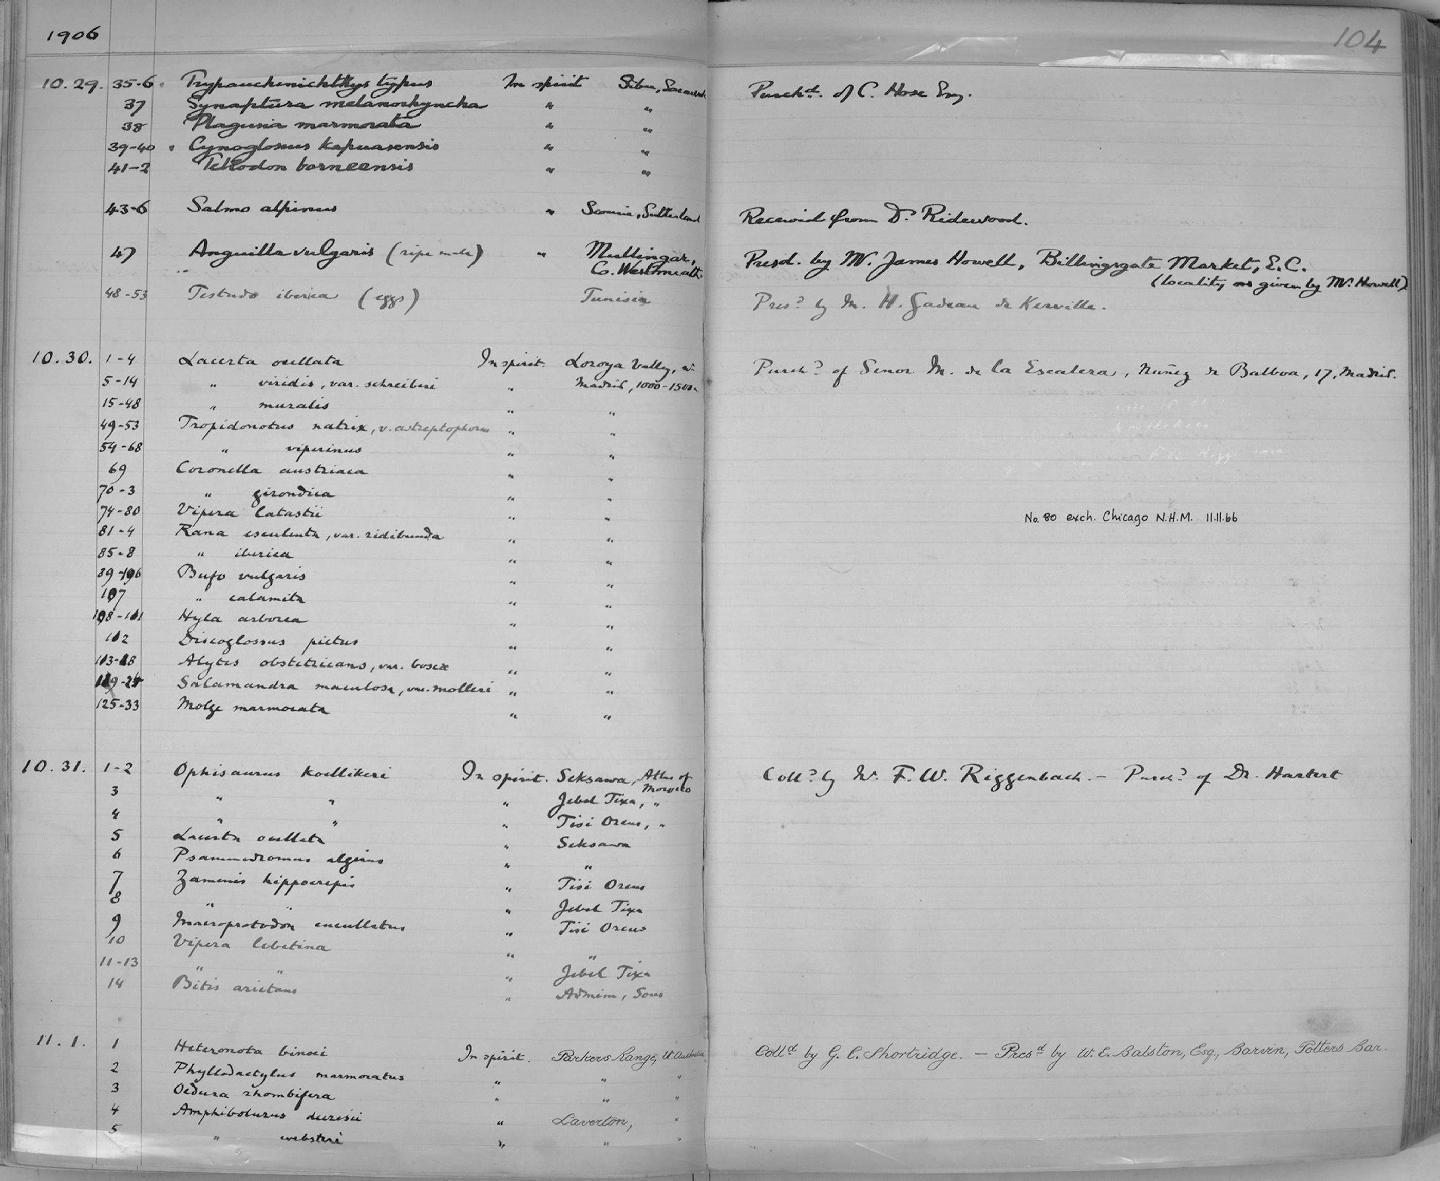 1906
104
10.29. 35-6 Trypauchenichthys typus In spirit Sibu, Sarawak Purchd. of C. Hose Esq.
37 Synaptura melanorhyncha " "
38 Plagusia marmorata " "
39-40 Cynoglossus kapuasensis " "
41-2 Tetrodon borneensis " "
43-6 Salmo alpinus " Scourie, Sutherland Received from Dr. Ridewood.
47 Anguilla vulgaris (ripe male) " Mullingar, Co. Westmeath Presd. by Mr. James Howell, Billingsgate Market, E.C.
(locality as given by Mr. Howell)
48-53 Testudo iberica (eggs) Tunisia Presd. by M. H. Gadeau de Kerville.
10.30. 1-4 Lacerta ocellata In spirit. Lozoya Valley, nr. Purchd. of Senor M. de la Escalera, Nuñez de Balboa, 17, Madrid.
5-14 " viridis, var. schreiberi " Madrid, 1000-1500m
15-48 " muralis " "
49-53 Tropidonotus natrix, v. astreptophorus " "
54-68 " viperinus " "
69 Coronella austriaca " "
70-3 " girondica " "
74-80 Vipera latastii " " No. 80 exch. Chicago N.H.M. 11.11.66
81-4 Rana esculenta, var. ridibunda " "
85-8 " iberica " "
89-106 Bufo vulgaris " "
107 " calamita " "
108-111 Hyla arborea " "
112 Discoglossus pictus " "
113-118 Alytes obstetricans, var. boscae " "
119-24 Salamandra maculosa, var. molleri " "
125-33 Molge marmorata " "
10.31. 1-2 Ophisaurus koellikeri In spirit. Seksawa, Atlas of Morocco Colld. by Mr. F. W. Riggenbach. — Purchd. of Dr. Hartert
3 " " " Jebel Tixa, "
4 " " " Tisi Oreus, "
5 Lacerta ocellata " Seksawa
6 Psammodromus algirus " "
7 Zamenis hippocrepis " Tisi Oreus
8 " " " Jebel Tixa
9 Macroprotodon cucullatus " Tisi Oreus
10 Vipera lebetina " "
11-13 " " " Jebel Tixa
14 Bitis arietans " Admim, Sous
11.1. 1 Heteronota binoei In spirit. Parkers Range, W. Australia Colld. by G. C. Shortridge. — Presd. by W. E. Balston, Esq., Barvin, Potters Bar.
2 Phyllodactylus marmoratus " " "
3 Oedura rhombifera " " "
4 Amphibolurus " Laverton, "
5 " websteri " " "